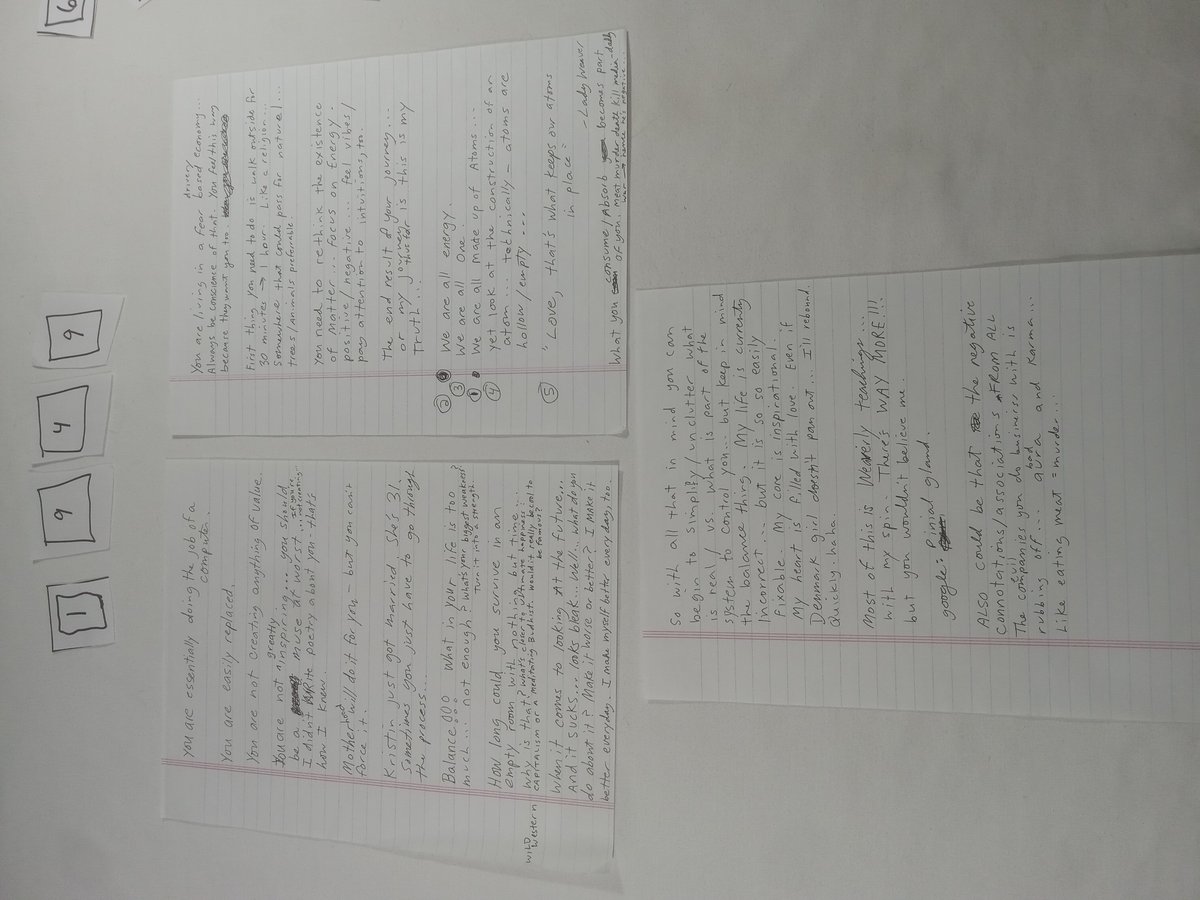 1
9
4
9
6
You are essentially doing the job of a
computer.
You are easily replaced.
You are not creating anything of value.
You are not greatly inspiring... you should
be a muse at worst... If you're not creating
I didn't write poetry about you - that's
how I knew.
Motherhood will do it for you - but you can't
force it.
Kristin just got married. She's 31.
Sometimes you just have to go through
the process...
Balance... What in your life is too
much... not enough? What's your biggest weakness?
Turn it into a strength.
How long could you survive in an
empty room with nothing but time...
Why is that? What's closer to ultimate happiness:
WILD Western CAPITALISM or a meditating Buddhist. Would it really be cool to
be famous?
When it comes to looking at the future...
And it sucks... looks bleak... Well... what do you
do about it? Make it worse or better? I make it
better everyday. I make myself better every day, too.
You are living in a fear driven based economy...
Always be conscience of that. You feel this way
because they want you too.
First thing you need to do is walk outside for
30 minutes → 1 hour. Like a religion...
Somewhere that could pass for nature...
trees/animals preferrable.
You need to rethink the existence
of matter... focus on Energy.
positive/negative... feel vibes/
pay attention to intuitions, too.
The end result of your journey...
or my journey thus far is this is my
truth...
② We are all energy.
③ We are all One.
① We are all made up of Atoms...
④ yet look at the construction of an
atom... technically - atoms are
hollow/empty...
⑤ Love, that's what keeps our atoms
in place"
- Lady Weaver
What you consume/Absorb becomes part
of you. Meat murder death kill media - daily
war → hence he's negative.
So with all that in mind you can
begin to simplify/unclutter what
is real/vs. what is part of the
system to control you... but keep in mind
the balance thing. My life is currently
incorrect... but it is so so easily
fixable. My core is inspirational.
My heart is filled with love. Even if
Denmark girl doesn't pan out... I'll rebound.
Quickly. haha.
Most of this is Weaverly teachings...
with my spin. There's WAY MORE!!!
but you wouldn't believe me..
google: pinial gland.
ALSO could be that the negative
connotations/associations FROM ALL
The companies you do business with is
rubbing off... bad aura and karma...
Like eating meat = murder...